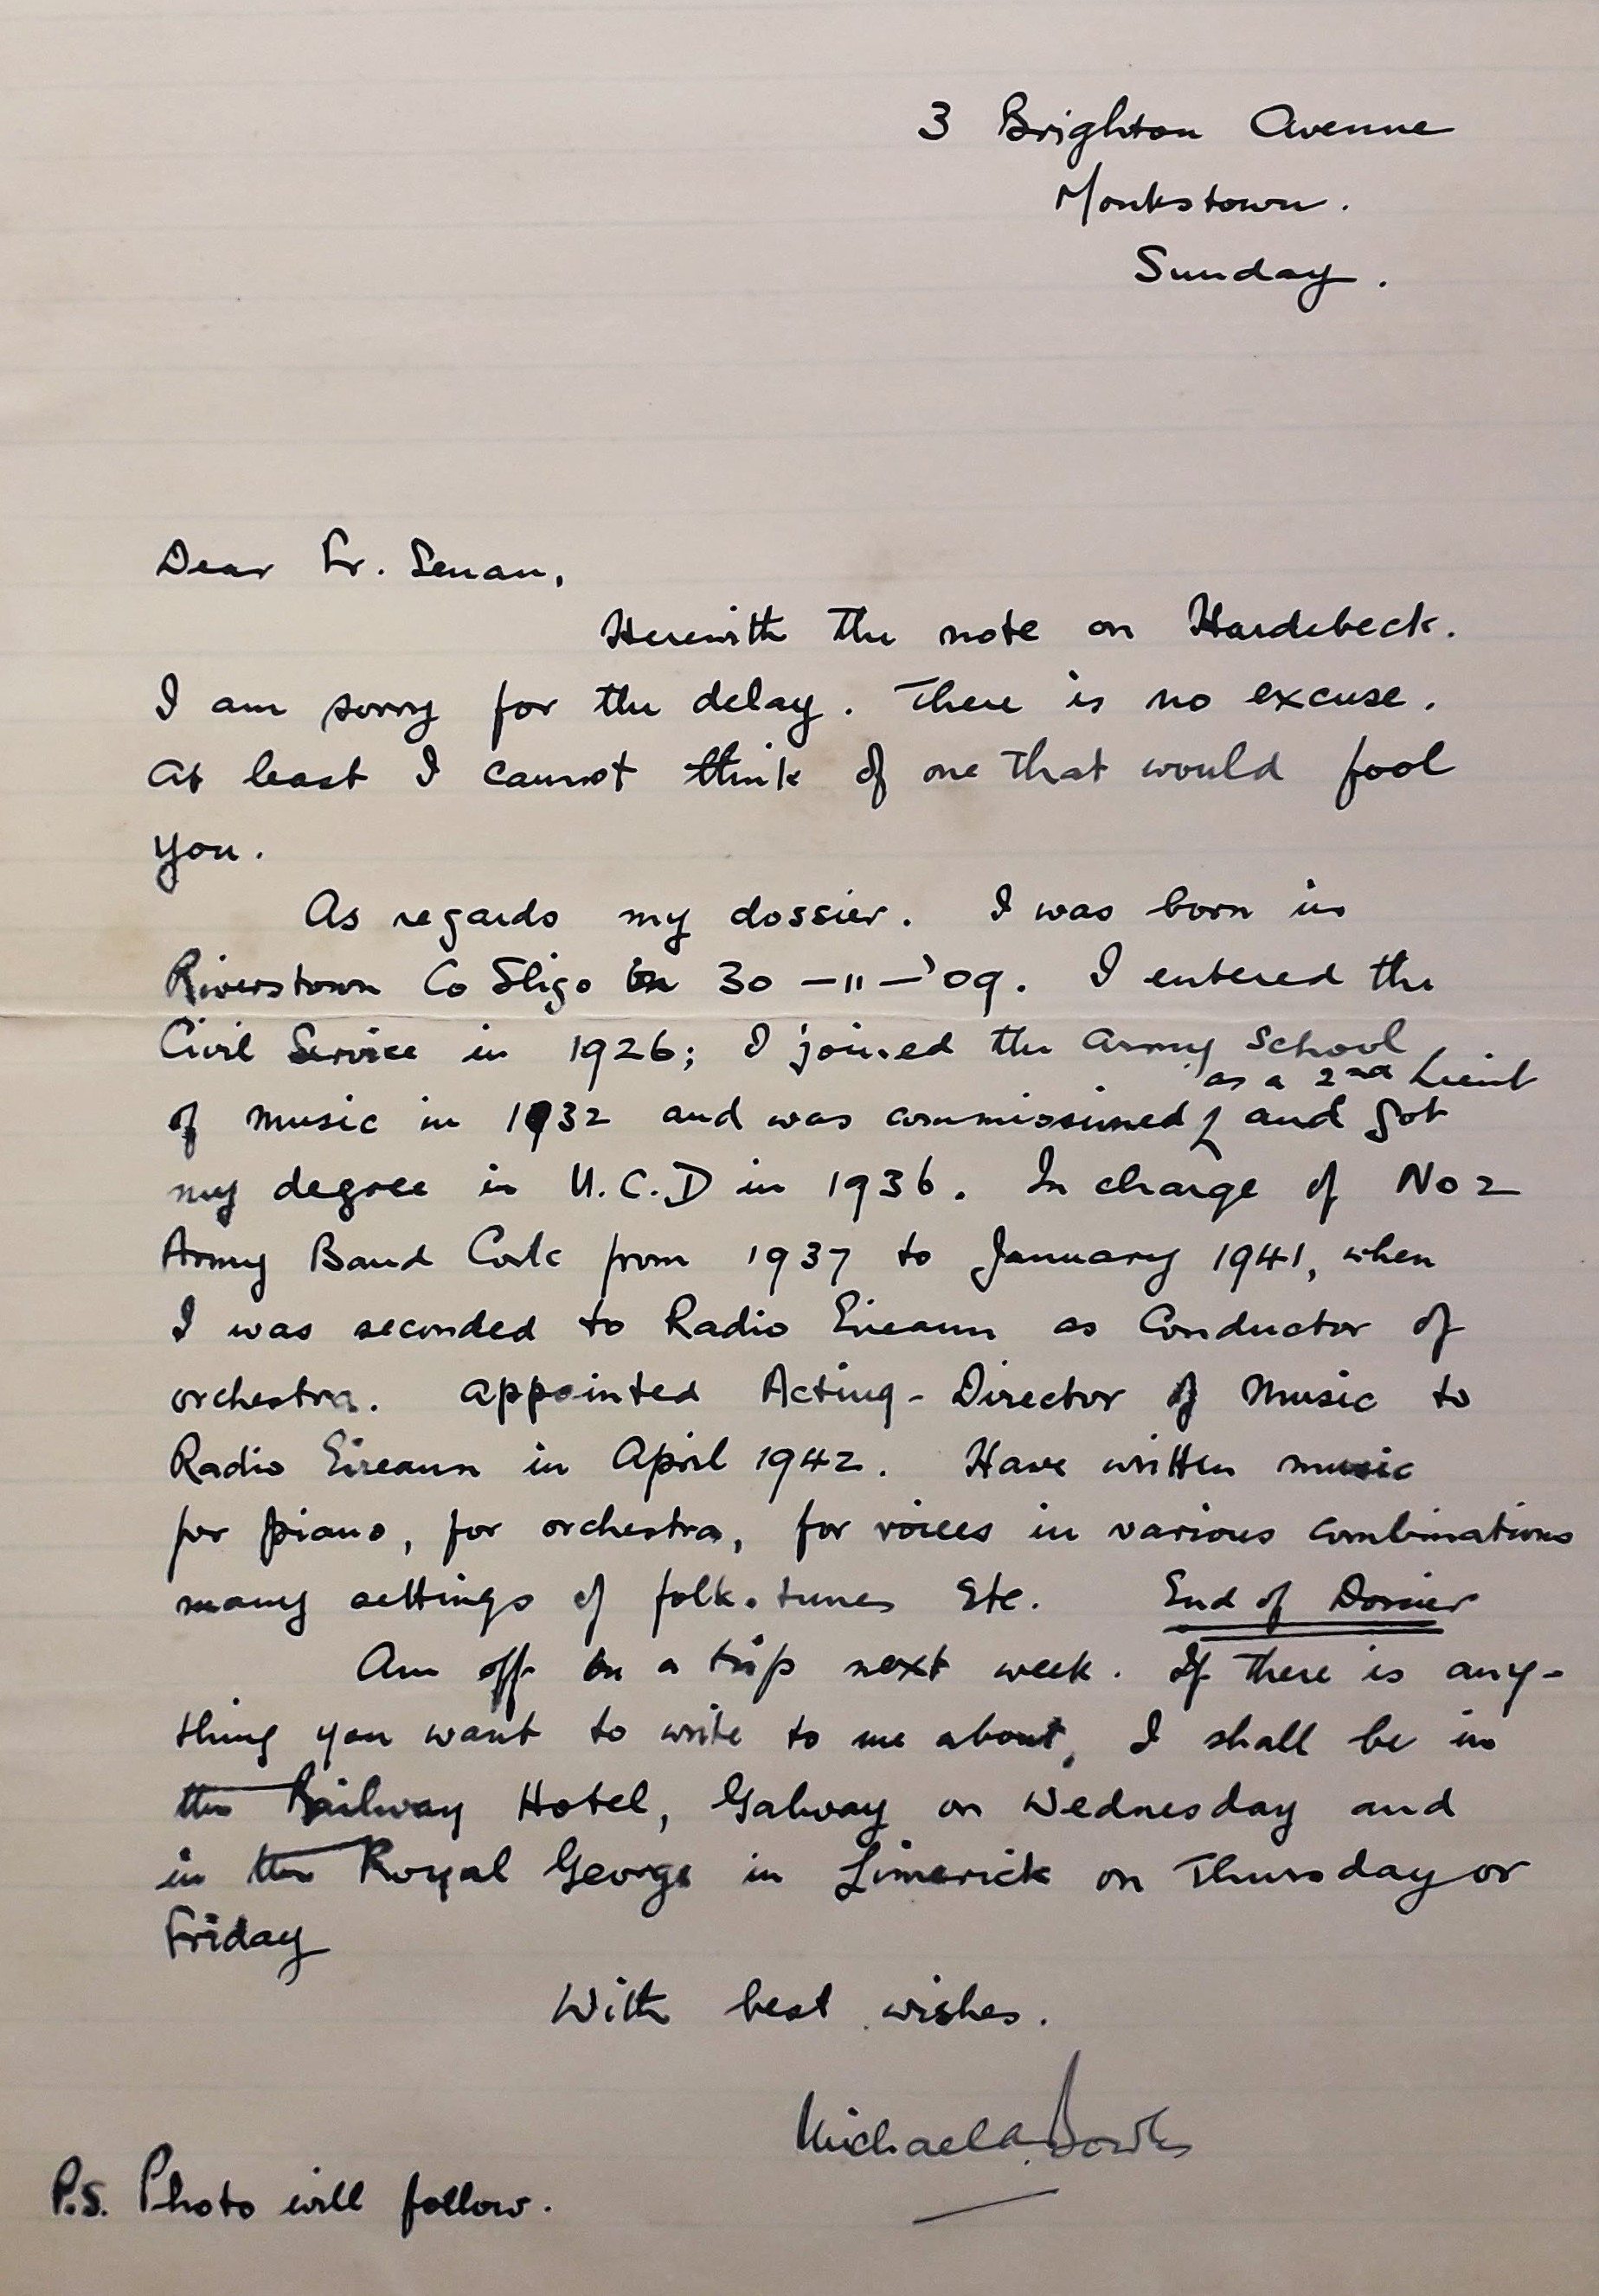 3 Brighton Avenue
Monkstown.
Sunday.
Dear Fr. Senan,
Herewith the note on Hardebeck.
I am sorry for the delay. There is no excuse.
At least I cannot think of one that would fool
you.
As regards my dossier. I was born in
Riverstown Co Sligo on 30 -11-'09. I entered the
Civil Service in 1926; I joined the Army School
as a 2nd Lieut
of Music in 1932 and was commissioned and got
my degree in U.C.D in 1936. In charge of No 2
Army Band Cork from 1937 to January 1941, when
I was seconded to Radio Eireann as Conductor of
orchestra. Appointed Acting-Director of Music to
Radio Eireann in April 1942. Have written music
for piano, for orchestra, for voices in various combinations
many settings of folk-tunes Etc. End of Dossier
Am off on a trip next week. If there is any-
thing you want to write to me about, I shall be in
the Railway Hotel, Galway on Wednesday and
in the Royal George in Limerick on Thursday or
Friday
With best wishes.
Michael Bowles
P.S. Photo will follow.